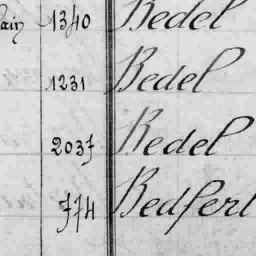 ain 1340 Bedel
1231 Bedel
2037 Bedel
774 Bedfert